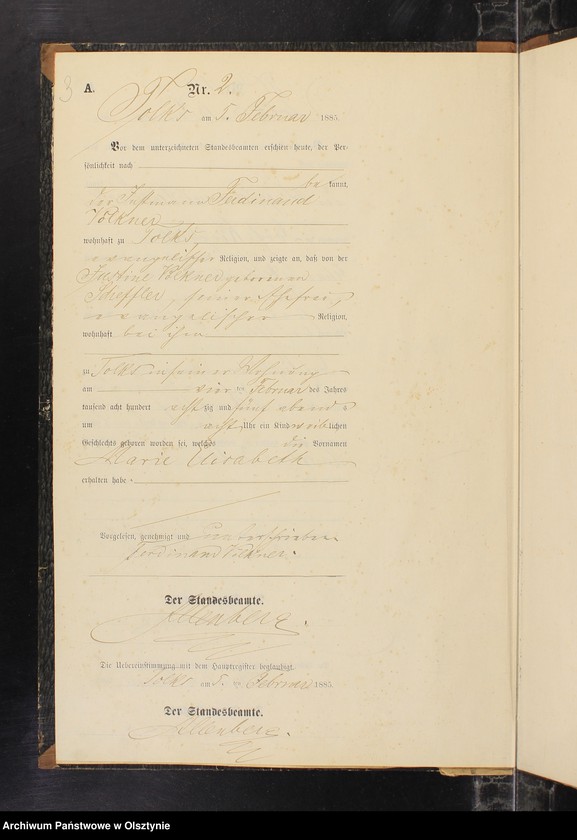 3
A. Nr. 2.
Tolks am 5. Februar 1885
Vor dem unterzeichneten Standesbeamten erschien heute, der Per-
sönlichkeit nach
be kannt,
der Instmann Ferdinand
Völkner
wohnhaft zu Tolks
evangelischer Religion, und zeigte an, daß von der
Justine Völkner geborenen
Scheffler, seiner Ehefrau,
evangelischer Religion,
wohnhaft bei ihm
zu Tolks in seiner Wohnung
am vier ten Februar des Jahres
tausend acht hundert acht zig und fünf abends
um acht Uhr ein Kind weiblichen
Geschlechts geboren worden sei, welches die Vornamen
Marie Elisabeth
erhalten habe
Vorgelesen, genehmigt und unterschrieben
Ferdinand Völkner.
Der Standesbeamte.
Die Uebereinstimmung mit dem Hauptregister beglaubigt.
Tolks am 5. ten Februar 1885.
Der Standesbeamte.
Archiwum Państwowe w Olsztynie